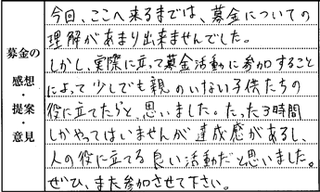 募金の
感想
・
提案
・
意見
今回、ここへ来るまでは、募金についての
理解があまり出来ませんでした。
しかし、実際に立って募金活動に参加すること
によって少しでも親のいない子供たちの
役に立てたらと、思いました。たった3時間
しかやってはいませんが達成感があるし、
人の役に立てる良い活動だと思いました。
ぜひ、また参加させて下さい。